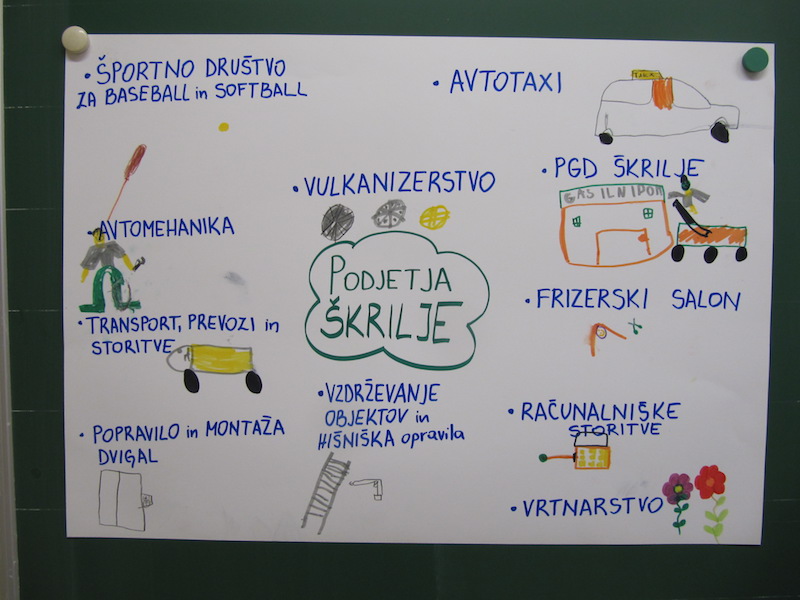 • ŠPORTNO DRUŠTVO
ZA BASEBALL in SOFTBALL
• AVTOTAXI
TAXI
• VULKANIZERSTVO
• PGD ŠKRILJE
GASILNI DOM
• AVTOMEHANIKA
PODJETJA
ŠKRILJE
• TRANSPORT, PREVOZI in
STORITVE
• FRIZERSKI SALON
• VZDRŽEVANJE
OBJEKTOV in
HIŠNIŠKA opravila
• RAČUNALNIŠKE
STORITVE
• POPRAVILO in MONTAŽA
DVIGAL
• VRTNARSTVO